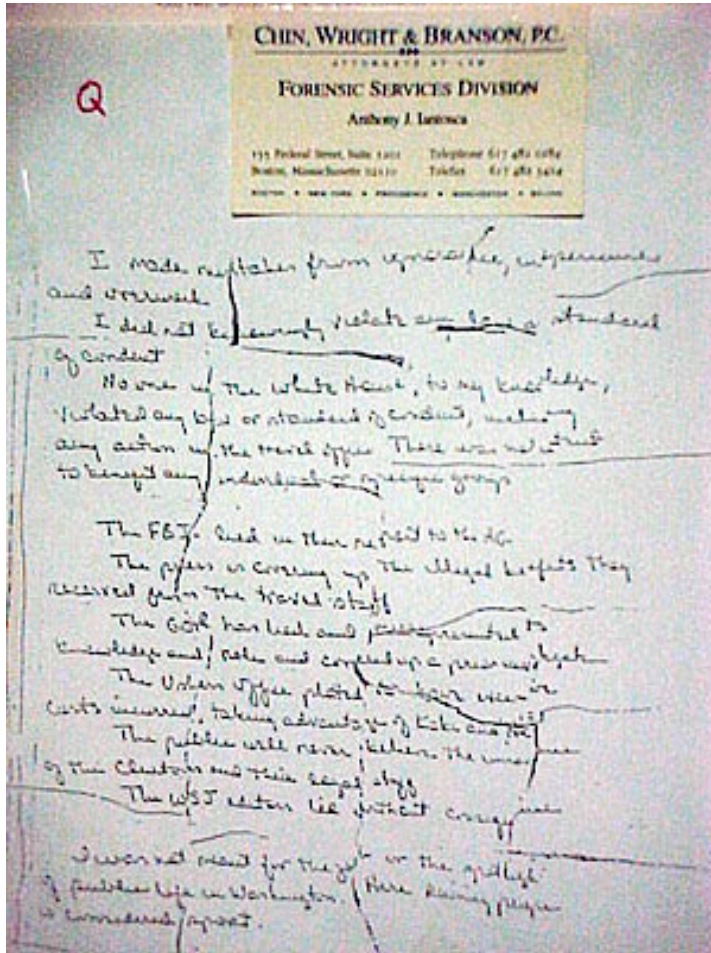 CHIN, WRIGHT & BRANSON, P.C.
ATTORNEYS AT LAW
FORENSIC SERVICES DIVISION
Anthony J. Iantosca
155 Federal Street, Suite 1201 Telephone 617 482
Boston, Massachusetts 02110 Telefax 617 482
BOSTON • NEW YORK • PROVIDENCE • MANCHESTER •
Q
I made mistakes from ignorance, inexperience
and overwork
I did not knowingly violate any law or standard
of conduct
No one in The White House, to my knowledge,
violated any law or standard of conduct, including
any action in the travel office. There was no intent
to benefit any individual or specific group
The FBI lied in their report to the AG
The press is covering up the illegal benefits they
received from the travel staff
The GOP has lied and misrepresented its
knowledge and role and covered up a prior investigation
The Ushers Office plotted to have excessive
costs incurred, taking advantage of Kaki and HRC
The public will never believe the innocence
of the Clintons and their loyal staff
The WSJ editors lie without consequence
I was not meant for the job or the spotlight
of public life in Washington. Here ruining people
is considered sport.